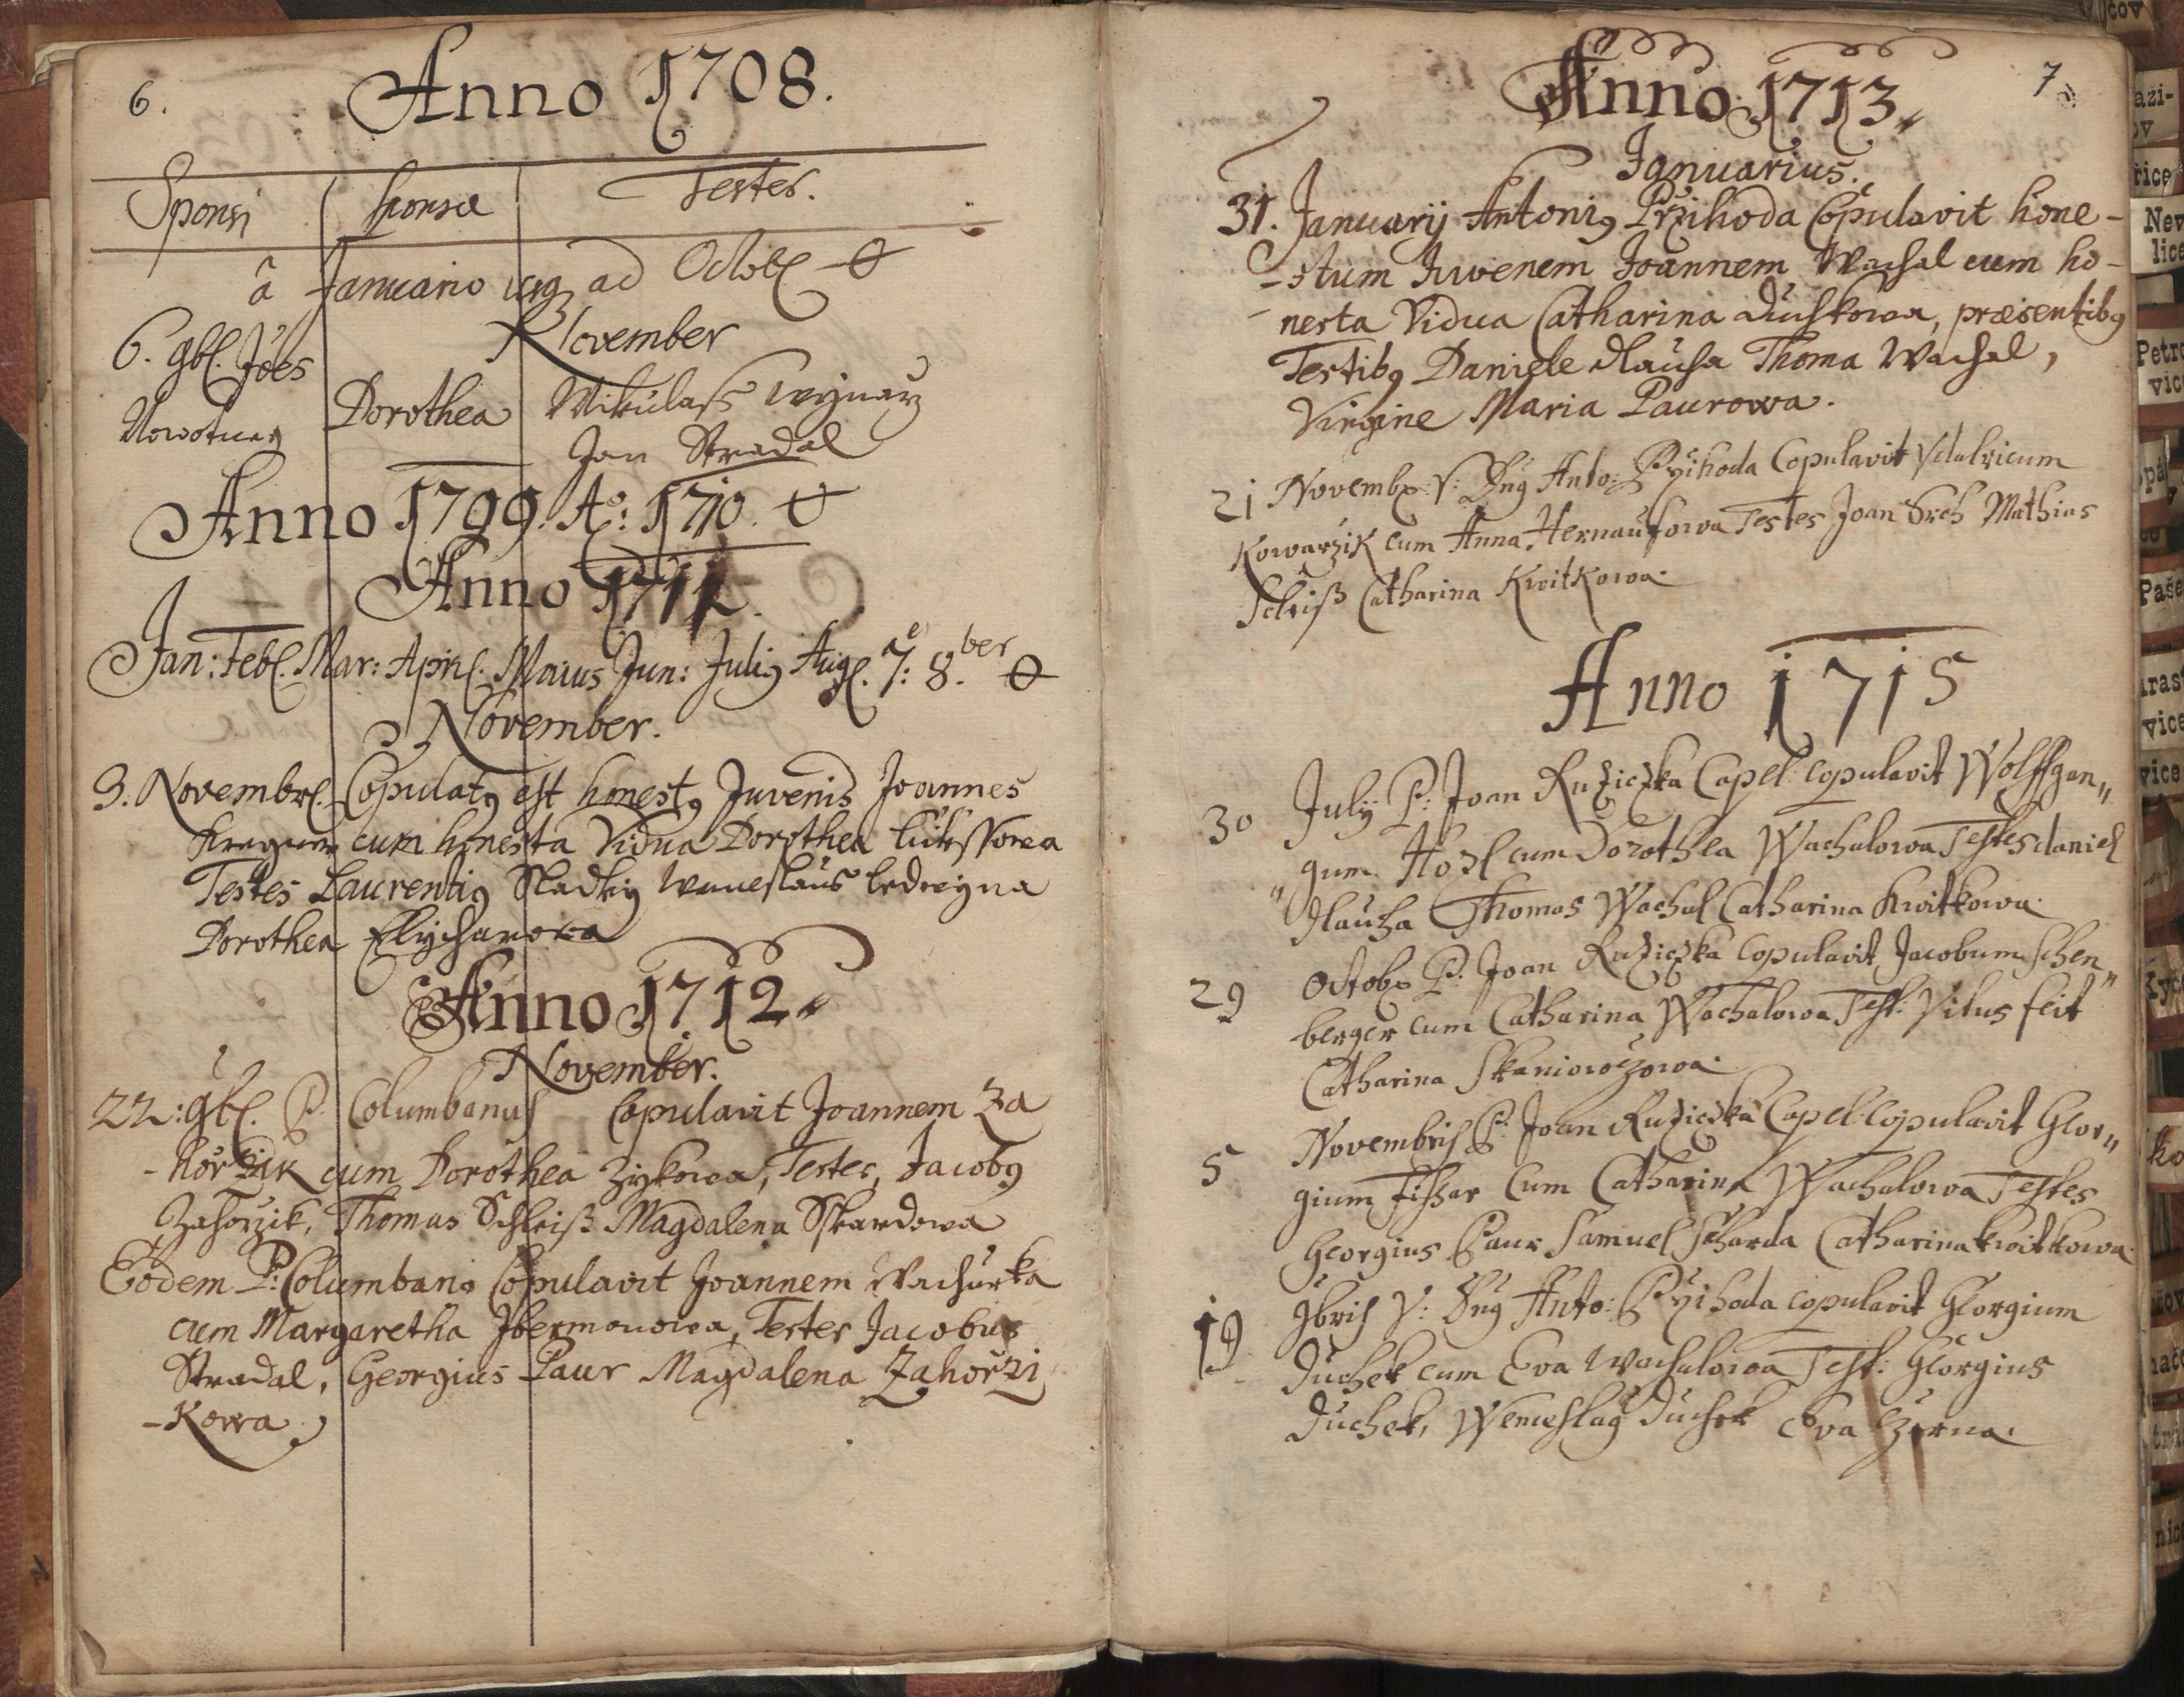 6.
Anno 1708.
Sponsi Sponsæ Testes.
â Januario usq ad Octobr
November
6. 9br. Joes
Nowotney Dorothea Mikulass
Jan Stradal
Anno 1709. Aō: 1710.
Anno 1711.
Jan: Febr. Mar: Apri. Maius Jun: Juli9 Aug. 7: 8.ber
November.
3. Novembr. Copulat9 est honest9 Juvenis Joannes
cum honesta Vidua Dorothea
Testes Laurenti9 Sladky Wenceslaus
Dorothea
Anno 1712.
November.
22: 9br. P. Columbanus Copulavit Joannem Za
-horzik cum Dorothea Zykowa, Testes, Jacob9
Zahorzik, Thomas Schleiß Magdalena Skardowa
Eodem P: Columban9 Copulavit Joannem Wachurka
cum Margaretha Hbermonowa, Testes Jacobus
Stradal, Georgius Paur Magdalena Zahorzi
-kowa
7
Anno 1713.
Januarius.
31. Januarij Antoni9 Przihoda Copulavit hone-
-stum Juvenem Joannem Wachal cum ho-
-nesta Vidua Catharina Duchkowa, præsentib9
Testib9 Daniele Hlauha Thoma Wachal,
Virgine Maria Paurowa.
21 Novembr: V: Dn9 Anto: Przihoda Copulavit Vdalricum
Kowarzik cum Anna Testes Joan Srch Mathias
Schleiß Catharina Kwitkowa.
Anno 1715
30 July P: Joan Ruziczka Capel: copulavit Wolffgan„
„gum cum Dorothea Wachalowa Testes daniel
Hlauha Thomas Wachal Catharina Kwitkowa.
29 Octobr P: Joan Ruziczka copulavit Jacobum Schen„
berger cum Catharina Wachalowa Test: Vitus feit
Catharina
5 Novembris P: Joan Ruziczka Capel: copulavit Geor„
gium Fisher Cum Catharina Wachalowa Testes
Georgius Paur Samuel Skarda Catharina Kwitkowa.
19 9bris V: Dn9 Anto: Przihoda copulavit Georgium
Duchek cum Eva Wachalowa Test: Georgius
Duchek, Wenceslaus Duchek Eva Czerna.